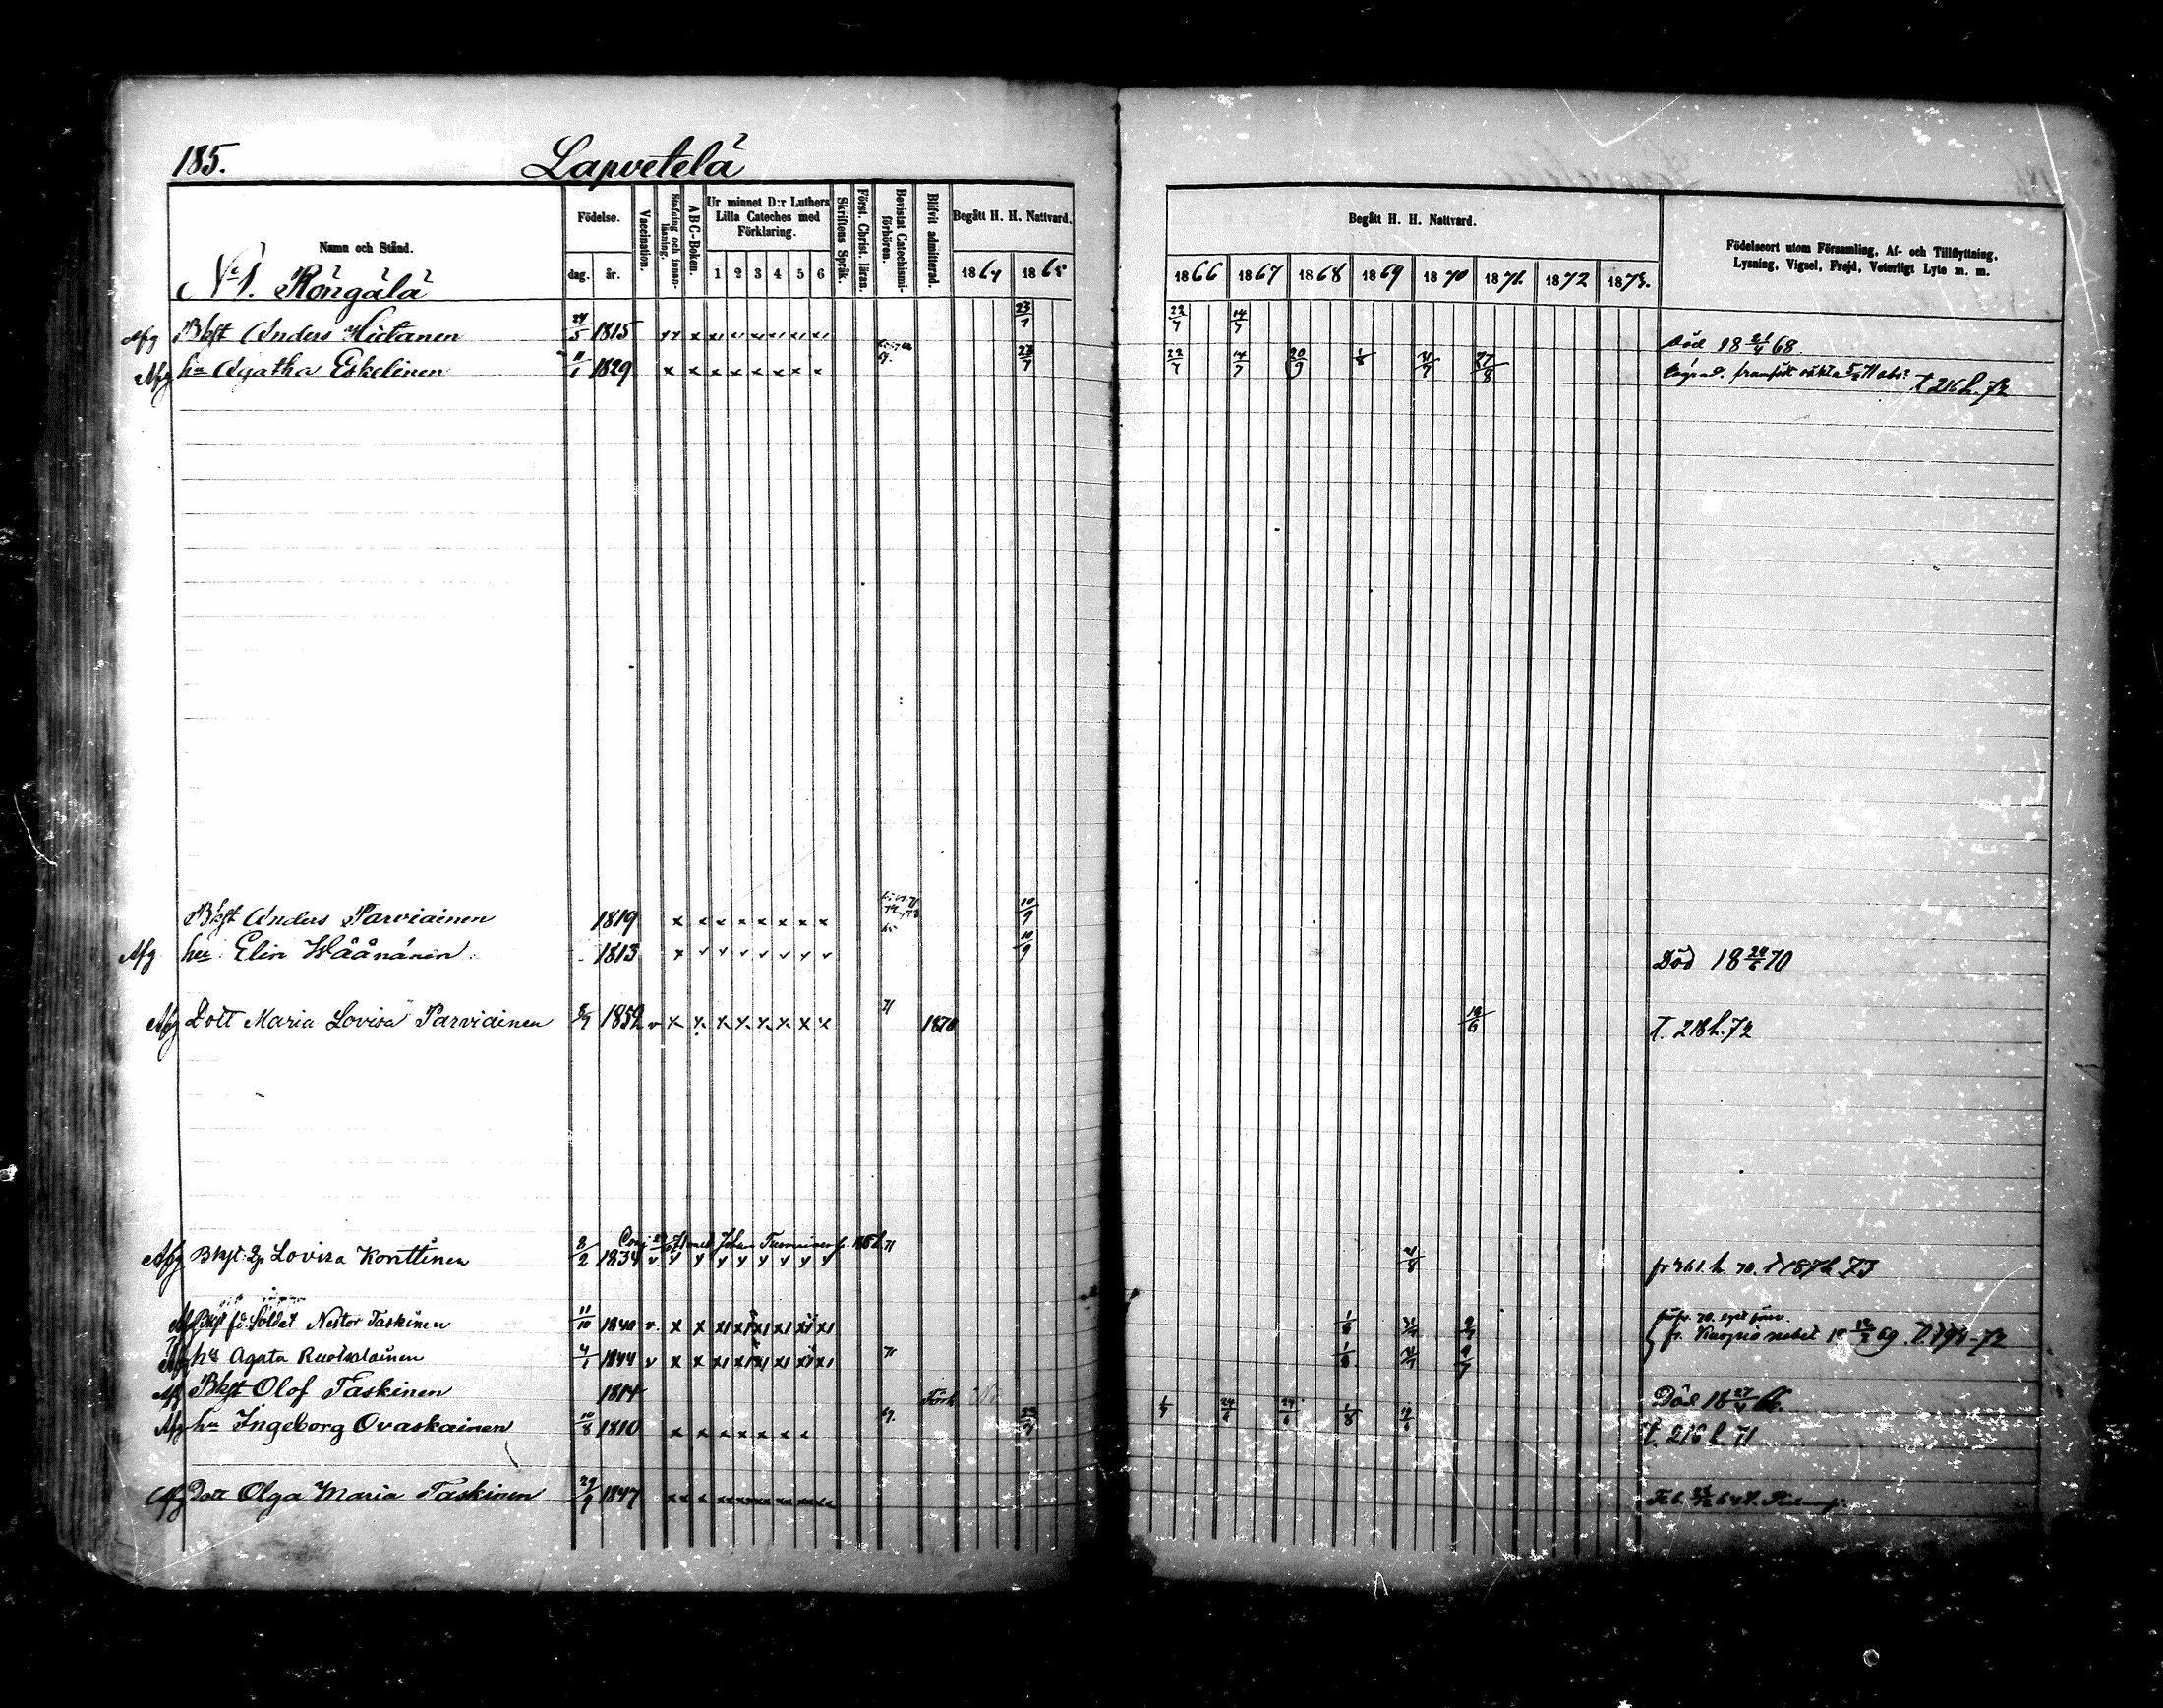 185. Lapvetelä
Namn och Stånd. Födelse. dag. år. Vaccination. Stafning och innanläsning. ABC-Boken. Ur minnet D:r Luthers Lilla Cateches med Förklaring. 1 2 3 4 5 6 Skriftens Språk. Först. Christ. läran. Bevistat Catechismiförhören. Blifvit admitterad. Begått H. H. Nattvard. 1864 1865
Begått H. H. Nattvard. 1866 1867 1868 1869 1870 1871. 1872 1873.
Födelseort utom Församling, Af- och Tillflyttning, Lysning, Vigsel, Frejd, Veterligt Lyte m. m.
No 1. Röngälä
Afg Bkft Anders Hietanen 24/5 1815 23/7 22/7 14/7 Död 18 21/4 68
Afg hu Agatha Eskelinen 11/1 1829 23/7 22/7 14/7 20/9 1/8 21/7 27/8 T 216 h. 72
Bkft Anders Parviainen 1819 10/9
Afg hu Elin Wäänänen 1813 65 10/9 Död 18 24/6 70
Afg Dott Maria Lovisa Parviainen 5/7 1852 v 71 1870 18/6 T. 218 h. 72
Afg Bkft. Lovisa Konttinen 8/2 1834 v 21/8 fr 361. h. 70. T 187 h 73
Afg Bkft fd. Soldat Nestor Taskinen 11/10 1840 v. 1/8 21/7 9/7 fr. Kuopio
Afg hu Agata Ruotsalainen 4/1 1844 v 71 1/8 21/7 9/7
Afg Bkft Olof Taskinen 1814 Död 18 27/4 66.
Afg hu Ingeborg Ovaskainen 10/8 1810 67. 23/7 1/7 24/6 24/6 1/8 19/6 T. 216 h. 71
Afg Dott Olga Maria Taskinen 29/9 1847